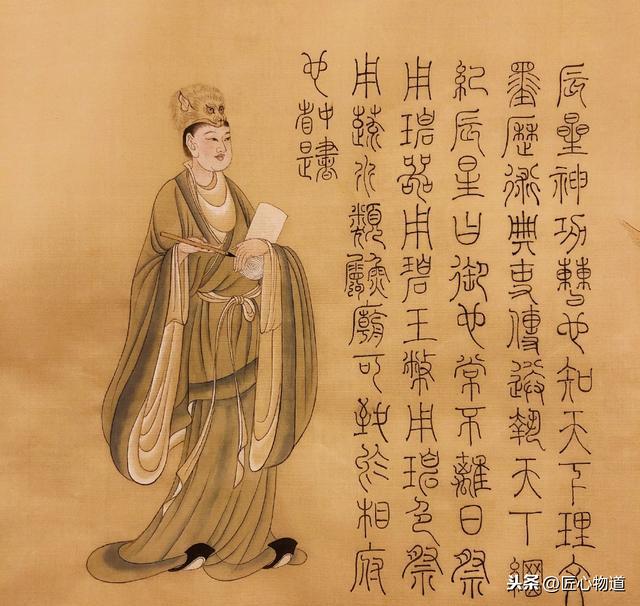 辰星神功曹也知天下理文
墨歷術典吏傳送執天下綱
紀辰星日御也常不離日祭
用碧器用碧玉幣用碧色祭
用蔬水類廟可致於相府
也中書者是
头条@匠心物道